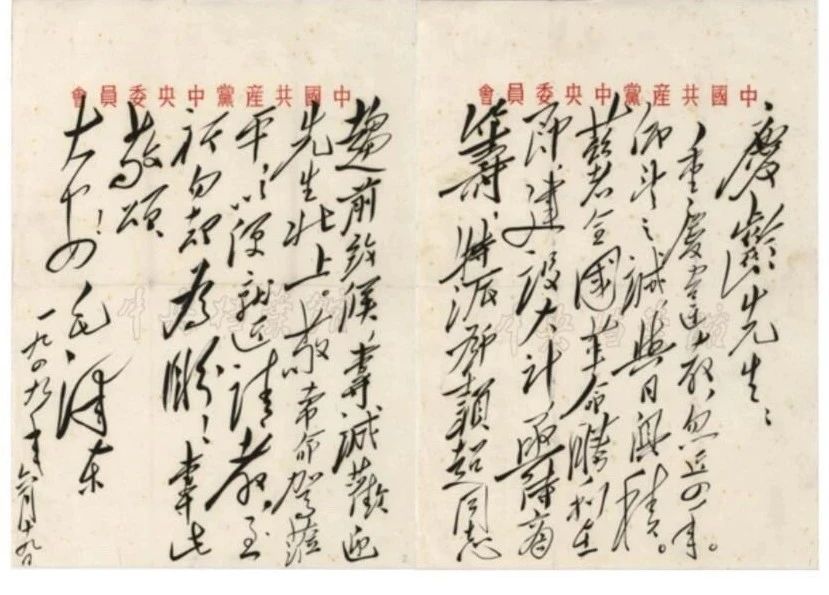 中國共產黨中央委員會
慶齡先生：
重慶違教，忽近四年。
仰望之誠，與日俱積。
茲者全國革命勝利在
即，建設大計，亟待商
籌，特派鄧穎超同志
中國共產黨中央委員會
趨前致候，專誠歡迎
先生北上。敬希命駕蒞
平，以便就近請教，至
祈勿却為盼！專此
敬頌
大安！毛澤東
一九四九年六月十九日